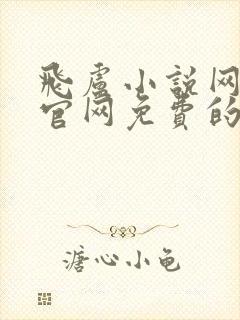 飛盧小説网
官网免費的
溏心小龟